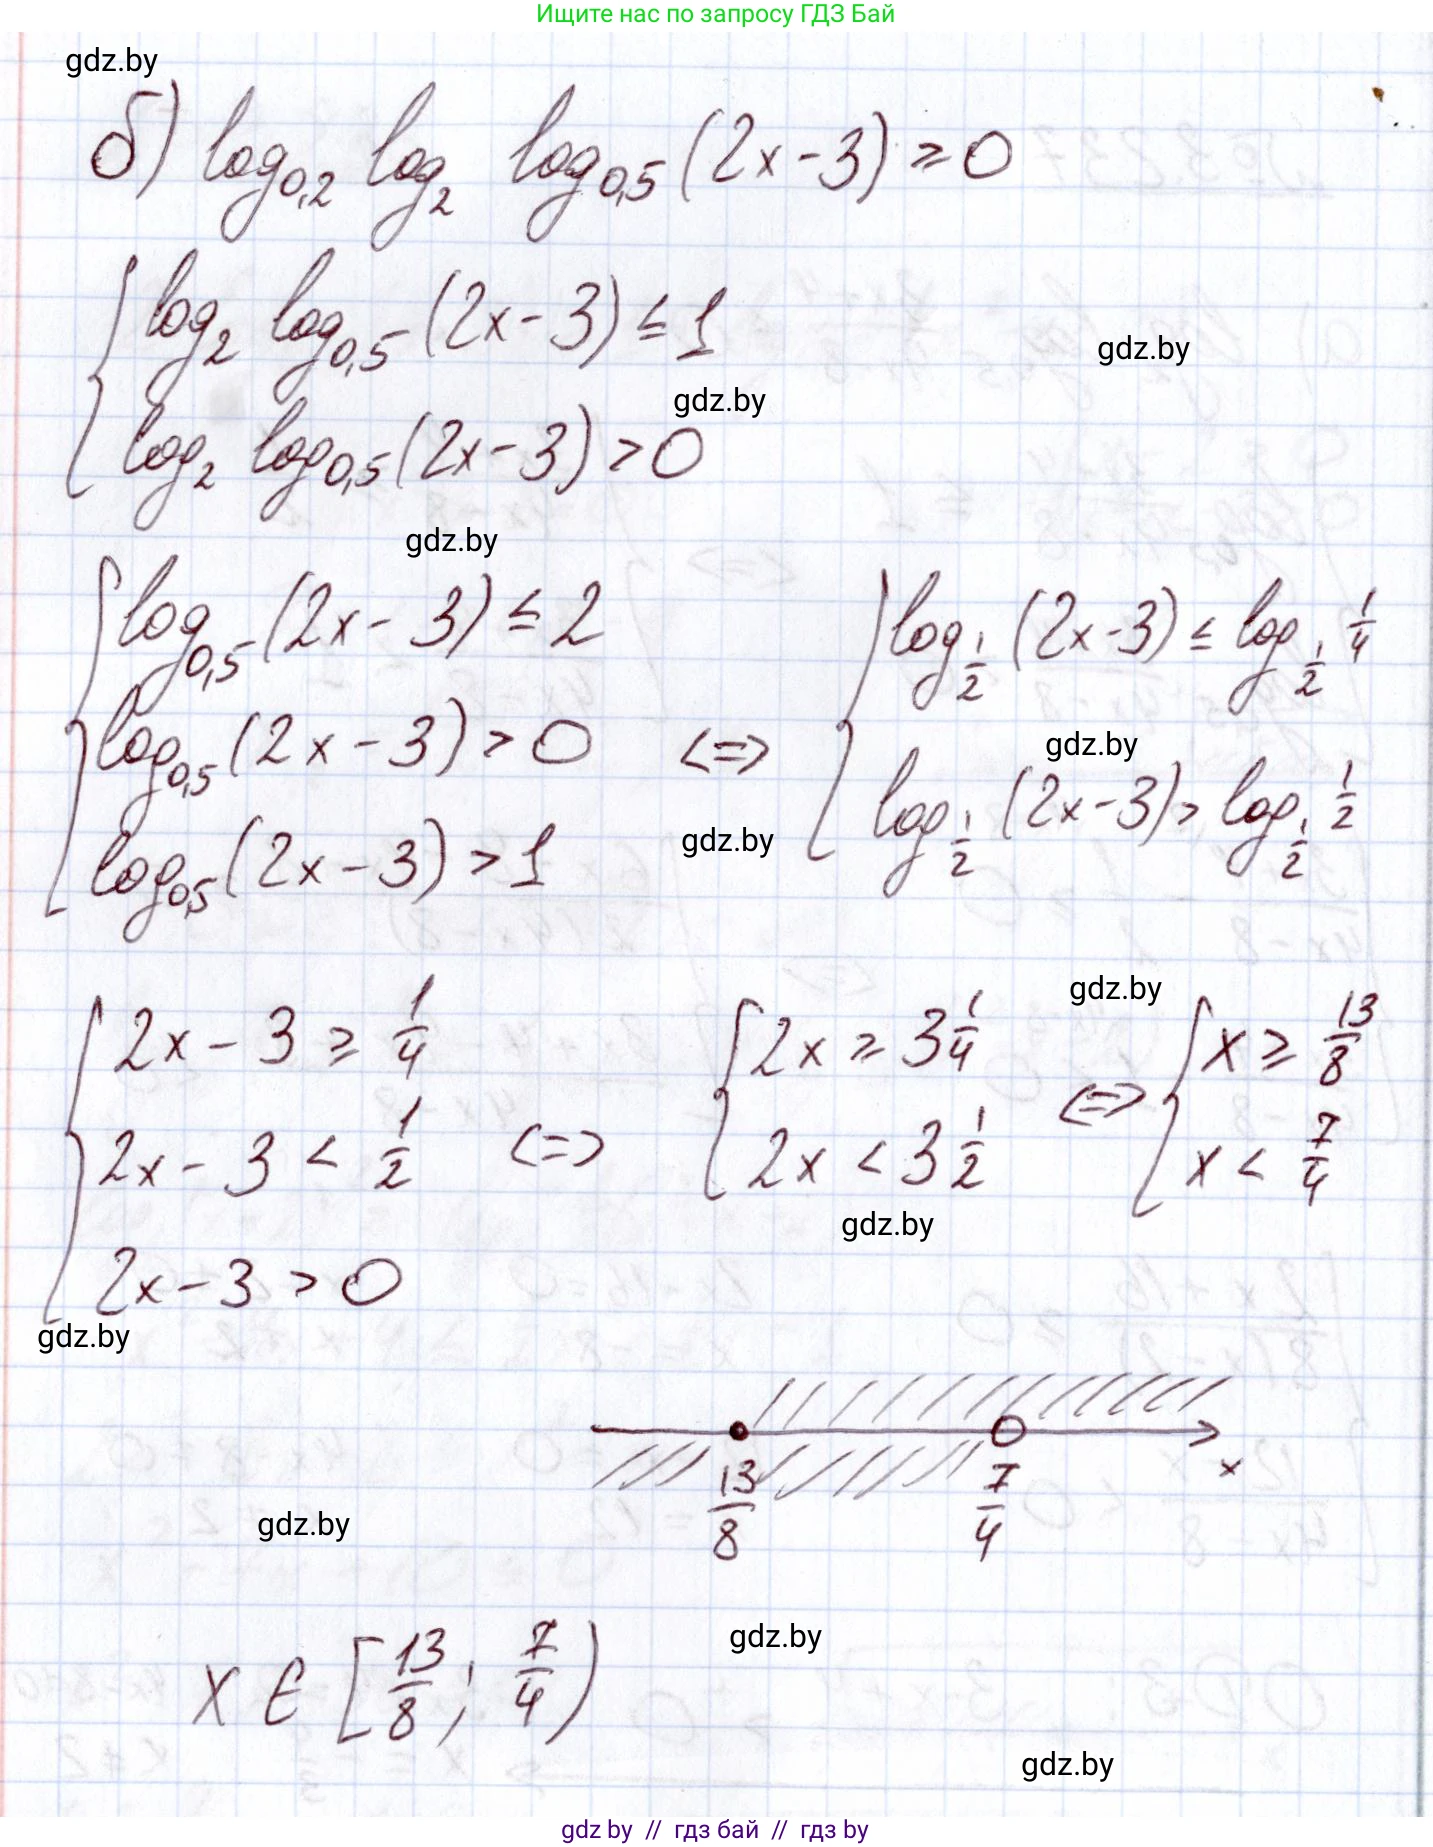 Ищите нас по запросу ГДЗ Бай
gdz.by
б) log₀,₂ log₂ log₀,₅ (2x-3) ≥ 0
{ log₂ log₀,₅ (2x-3) ≤ 1
gdz.by
gdz.by
log₂ log₀,₅ (2x-3) > 0
gdz.by
{ log₀,₅ (2x-3) ≤ 2
log₀,₅ (2x-3) > 0
log₀,₅ (2x-3) > 1
<=> { log_1/2 (2x-3) ≤ log_1/2 1/4
gdz.by
log_1/2 (2x-3) > log_1/2 1/2
gdz.by
{ 2x-3 ≥ 1/4
2x-3 < 1/2
2x-3 > 0
<=> { 2x ≥ 3 1/4
2x < 3 1/2
gdz.by
<=> { x ≥ 13/8
x < 7/4
gdz.by
gdz.by
13/8 7/4 x
gdz.by
gdz.by
x ∈ [13/8; 7/4)
gdz.by
gdz by // гдз бай // гдз by